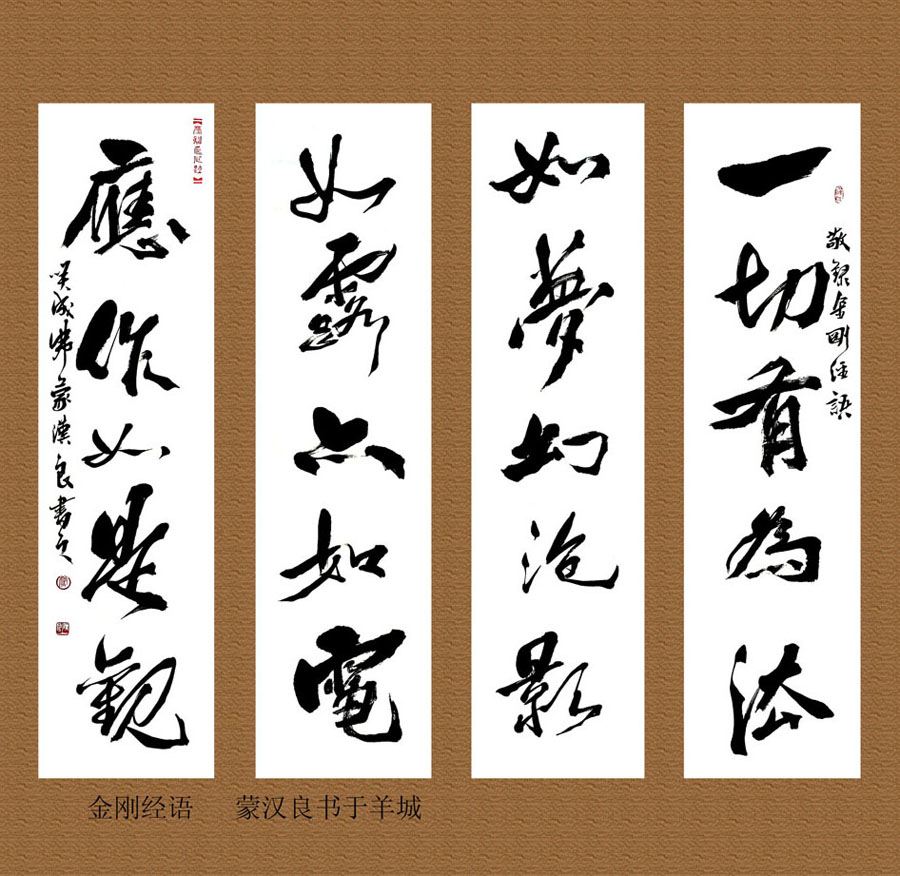 一切有為法
敬錄金剛经語
如夢幻泡影
如露亦如電
應作如是觀
蒙漢良書
金刚经语 蒙汉良书于羊城